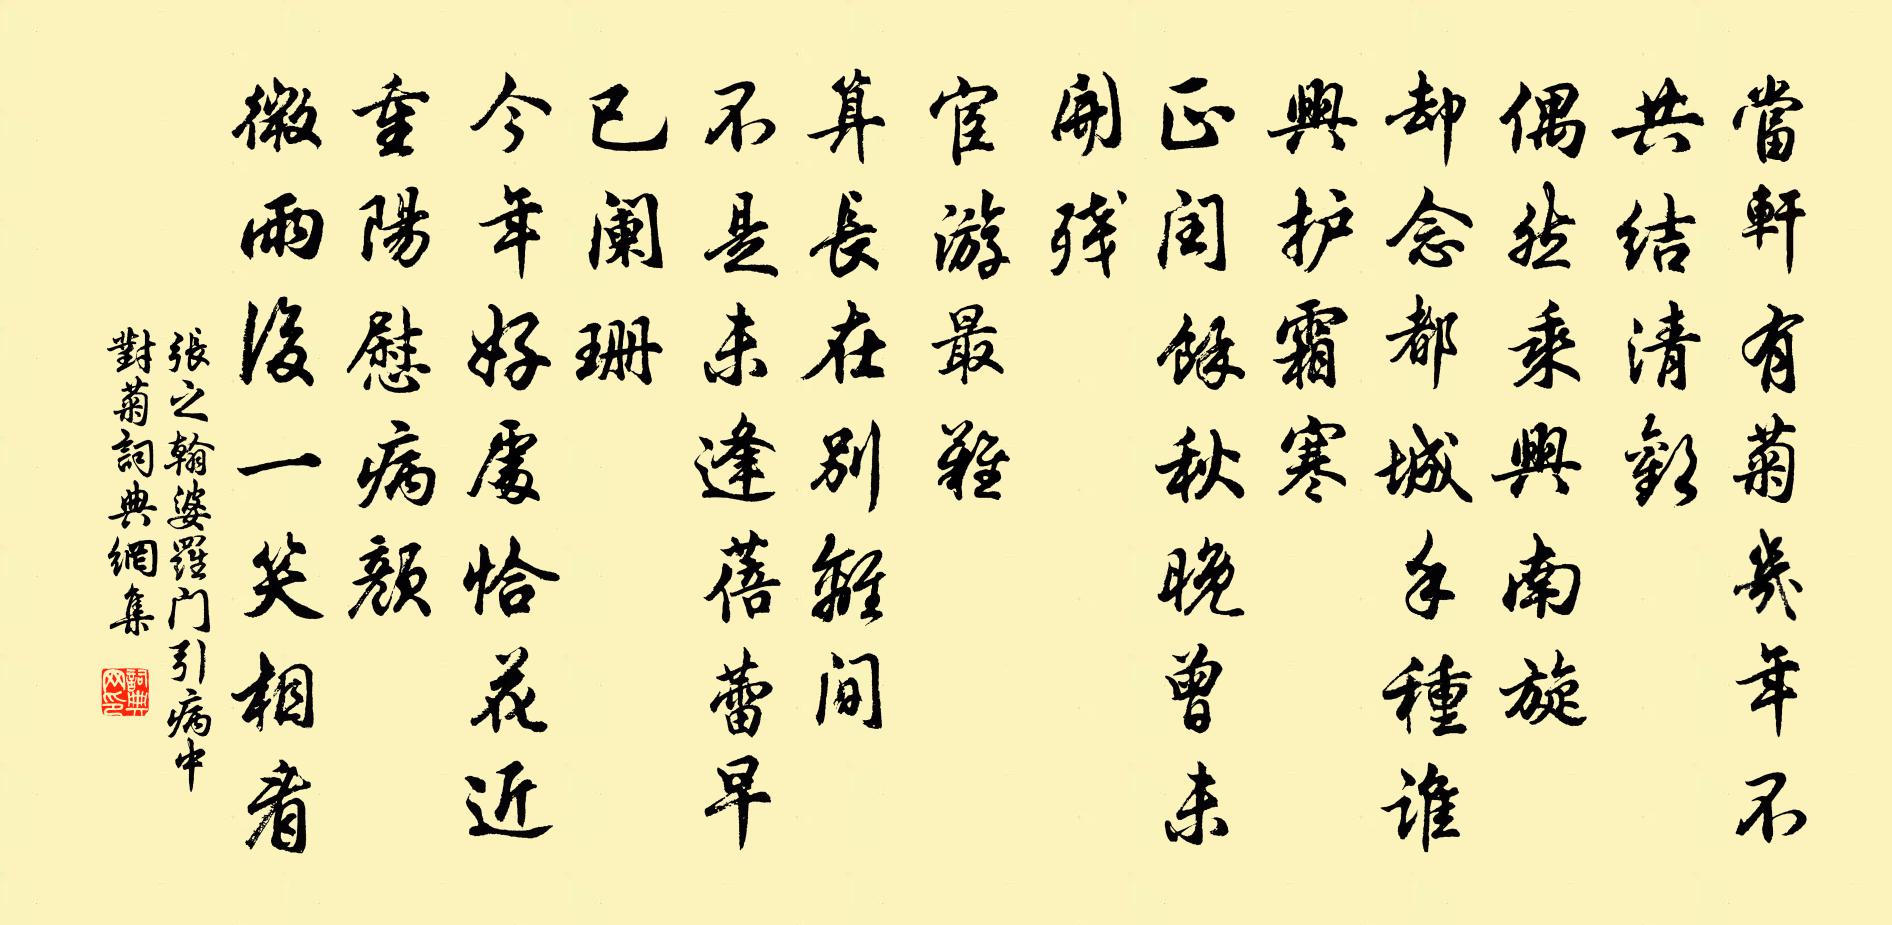 當軒有菊幾年不
共結清歡
偶然乘興南旋
却念都城手種誰
興护霜寒
正闰餘秋晚曾未
開残
宦游最難
算長在別離间
不是未逢蓓蕾早
已阑珊
今年好處恰花近
重陽慰病顏
微雨後一笑相看
張之翰婆羅门引病中
對菊詞典網集
詞典
网印